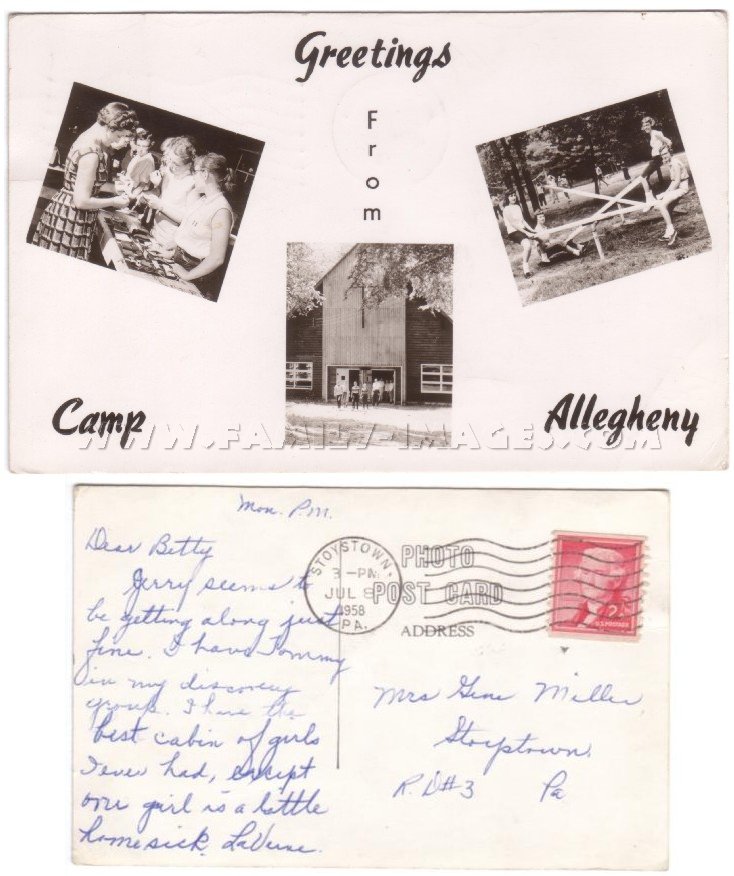 Greetings
From
Camp
Allegheny
WWW.FAMILY-IMAGES.COM
Mon. P.M.
Dear Betty
Jerry seems to
be getting along just
fine. I have Tommy
in my discovery
group. I have the
best cabin of girls
I ever had, except
one girl is a little
homesick. LaVerne
STOYSTOWN,
3-PM
JUL
1958
PA.
PHOTO
POST CARD
ADDRESS
2¢
U.S. POSTAGE
Mrs Gene Miller
Stoystown,
R.D#3 Pa